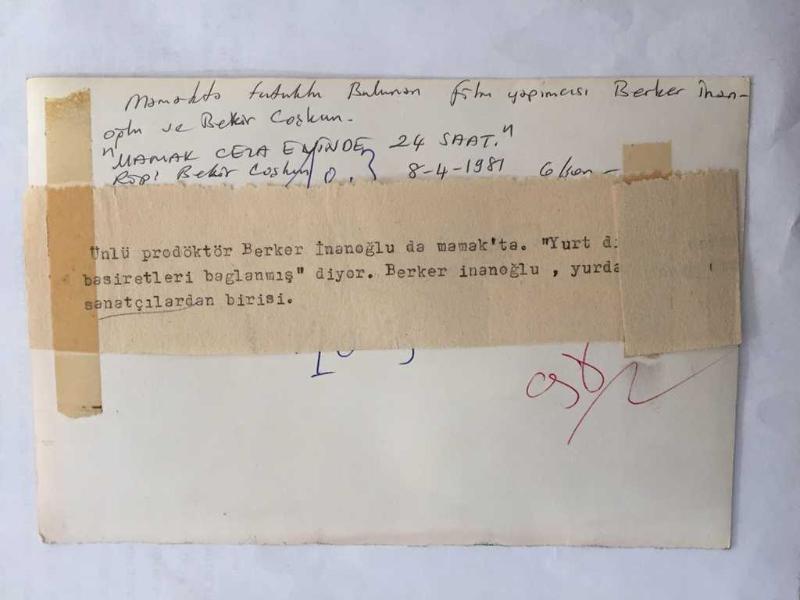 Mamakta tutuklu Bulunan film yapımcısı Berker İnan-
oğlu ve Bekir Coşkun.
"MAMAK CEZA EVİNDE 24 SAAT."
Röp: Bekir Coşkun 8-4-1981
Ünlü prodöktör Berker İnanoğlu da mamak'ta. "Yurt
basiretleri baglanmış" diyor. Berker inanoğlu , yurda
sanatçılardan birisi.